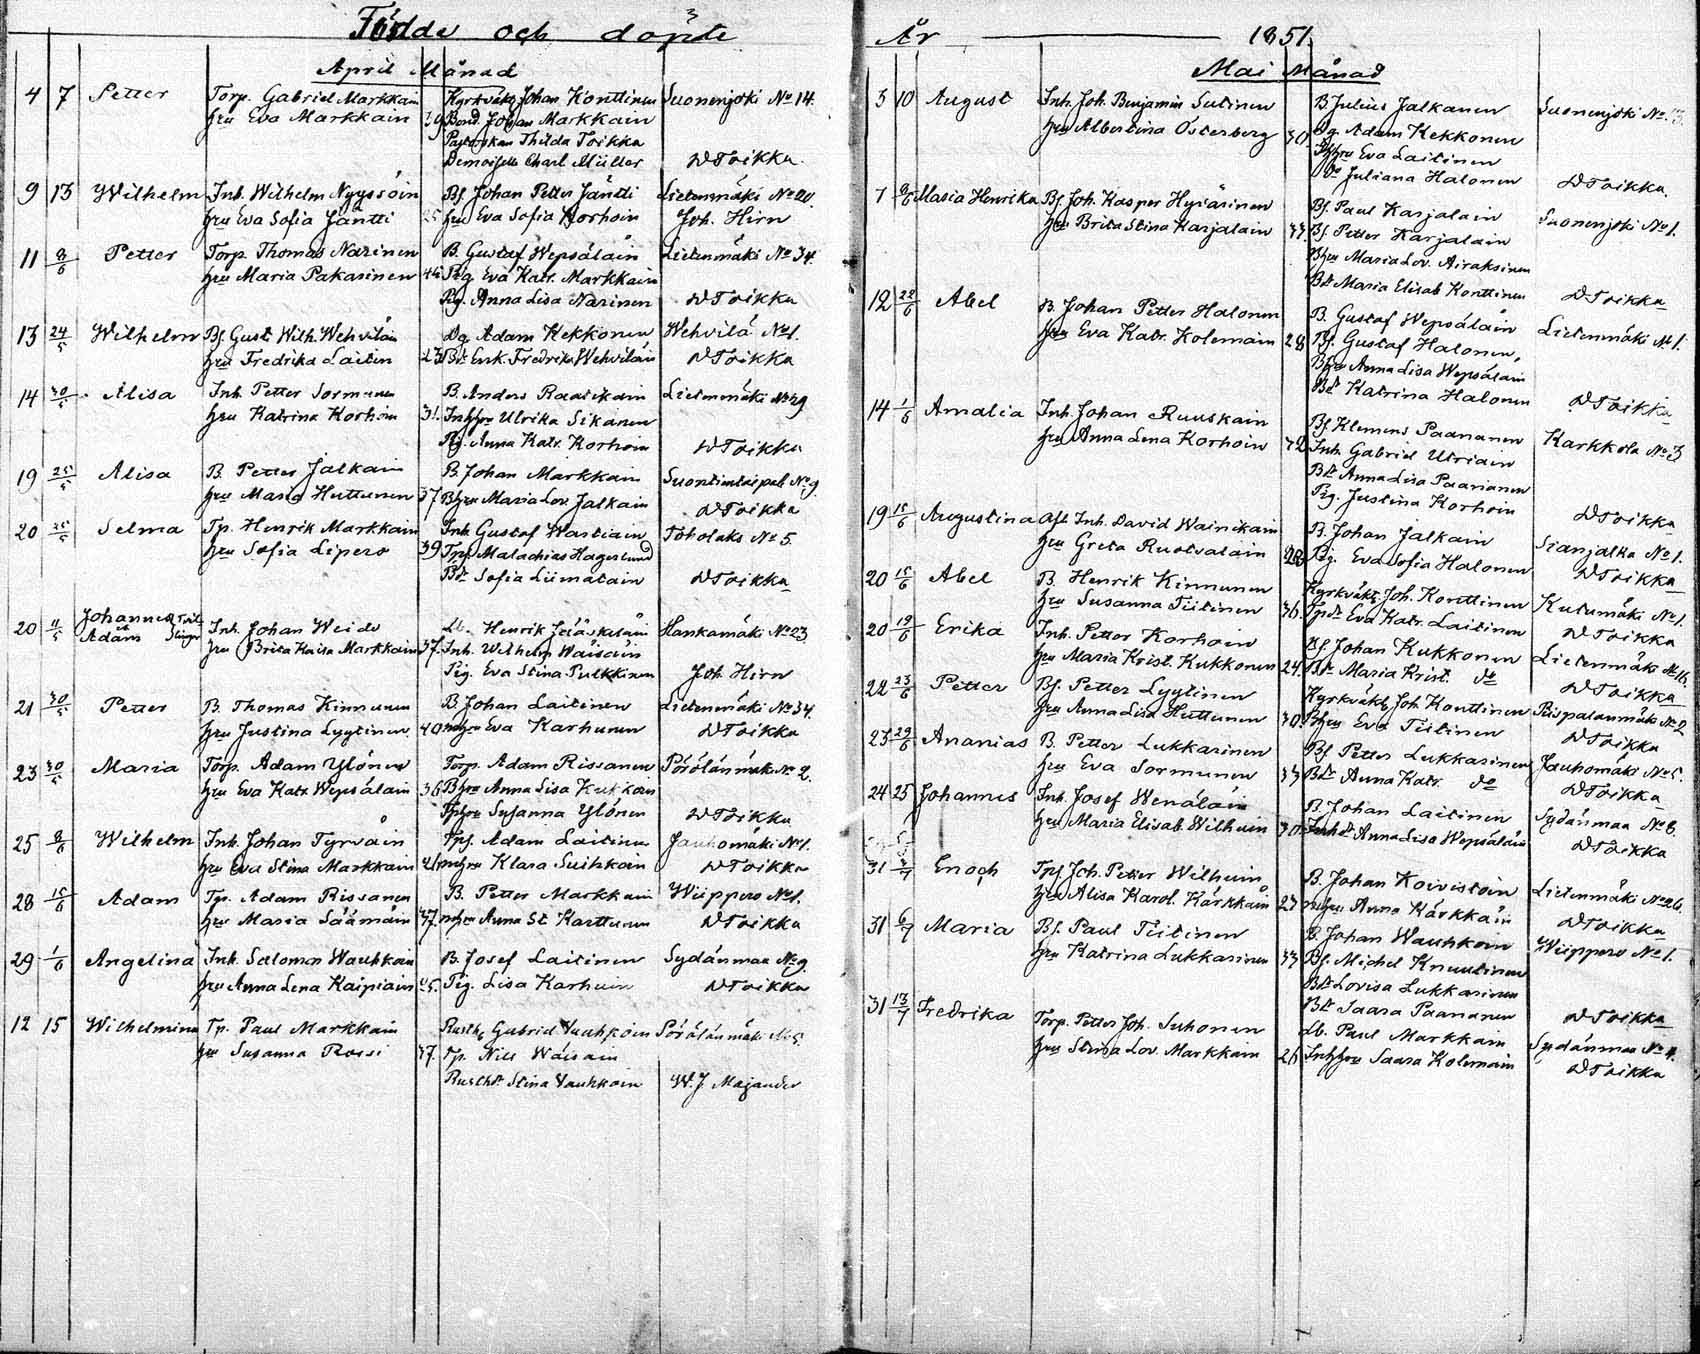 Födde och döpte
April Månad
4 7 Petter Torp. Gabriel Markkain Kyrkväkt. Johan Konttinen Suonenjoki No 14.
hru Eva Markkain 39 Bond. Johan Markkain
Pastorskan Thilda Toikka
Demoiselle Charl. Müller D Toikka.
9 13 Wilhelm Inh. Wilhelm Nyyssöin Bs. Johan Petter Jäntti Lietenmäki No 20.
hru Eva Sofia Jäntti 25 hru Eva Sofia Korhoin Joh. Hirn
11 8/6 Petter Torp. Thomas Narinen B. Gustaf Wepsäläin Lietenmäki No 34.
hru Maria Pakarinen 44 Pig. Eva Katr. Markkain
Pig. Anna Lisa Narinen D Toikka
13 24/5 Wilhelm Bs. Gust. Wilh. Wehviläin Dg. Adam Kekkonen Wehvilä No 1.
hru Fredrika Laitin 23 Bdr Enk. Fredrika Wehviläin D Toikka
14 30/5 Alisa Inh. Petter Sormunen B. Anders Raatikain Lietenmäki No 29
hru Katrina Korhoin 31. Inhhru Ulrika Sikanen
Pig. Anna Katr. Korhoin D Toikka
19 25/5 Alisa B. Petter Jalkain B. Johan Markkain Suontientaipal No 9.
hru Maria Huttunen 37 Bhru Maria Lov. Jalkain D Toikka
20 25/5 Selma Tp. Henrik Markkain Inh. Gustaf Wartiain Toholaks No 5.
hru Sofia Lipero 39 Tps. Malachias Hagerlund
Bdr Sofia Liimatain D Toikka
20 11/5 Johannes et Adam Inh. Johan Weide Lb. Henrik Jääskeläin Hankamäki No 23
hru Brita Kaisa Markkain 37. Inh. Wilhelm Wäisäin
Pig. Eva Stina Pulkkinen Joh. Hirn
21 30/5 Petter B. Thomas Kinnunen B. Johan Laitinen Lietenmäki No 34.
hru Justina Lyytinen 40 mhru Eva Karhunen D Toikka
23 30/5 Maria Torp. Adam Ylönen Torp. Adam Rissanen Pörölänmäki No 2.
hru Eva Katr. Wepsäläin 36 Bhru Anna Lisa Kukkoin
Tphru Susanna Ylönen D Toikka
25 8/6 Wilhelm Inh. Johan Tyrväin Tps. Adam Laitinen Jauhomäki No 1.
hru Eva Stina Markkain 21 mhru Klara Suihkoin D Toikka
28 15/6 Adam Tp. Adam Rissanen B. Petter Markkain Wiippero No 1.
hru Maria Säämäin 37. mhru Anna St. Karttunen D Toikka
29 1/6 Angelina Inh. Salomon Wauhkoin B. Josef Laitinen Sydänmaa No 9.
hru Anna Lena Kaipiain 45. Pig. Lisa Karhuin D Toikka
12 15 Wilhelmina Tp. Paul Markkain Rusth. Gabriel Vauhkoin Pörölänmäki No 5
hru Susanna Rossi 37. Tp. Nils Wäisäin
Rusthdr Stina Vauhkoin W. J. Majander
År 1851.
Mai Månad
3 10 August Inh. Joh. Benjamin Sutinen B. Julius Jalkanen Suonenjoki No 13.
hru Albertina Österberg 30 Dg. Adam Kekkonen
Bhru Eva Laitinen
Do Juliana Halonen D Toikka.
7 8/6 Maria Henrika Bs. Joh. Kasper Hyvärinen Bs. Paul Karjalain Suonenjoki No 1.
hru Brita Stina Karjalain 37 Bs. Petter Karjalain
Bhru Maria Lov. Airaksinen
Bdr Maria Elisab. Konttinen D Toikka
12 22/6 Abel B. Johan Petter Halonen B. Gustaf Wepsäläin Lietenmäki No 1.
hru Eva Katr. Kolemain 28 Bs. Gustaf Halonen,
Bhru Anna Lisa Wepsäläin
Bdr Katrina Halonen D Toikka
14 1/6 Amalia Inh. Johan Ruuskain Bs. Klemens Paananen Karkkola No 3
hru Anna Lena Korhoin 42 Inh. Gabriel Utriain
Bdr Anna Lisa Paananen
Pig. Justina Korhoin D Toikka
19 15/6 Augustina Afl. Inh. David Wainikain B. Johan Jalkain Sianjalka No 1.
hru Greta Ruotsalain 28 Pig. Eva Sofia Halonen D Toikka
20 15/6 Abel B. Henrik Kinnunen Kyrkväkt. Joh. Konttinen Kutumäki No 1.
hru Susanna Tiitinen 36. Tpdr Eva Katr. Laitinen D Toikka
20 19/6 Erika Inh. Petter Korhoin Bs. Johan Kukkonen Lietenmäki No 16.
hru Maria Krist. Kukkonen 24. Bdr Maria Krist. do D Toikka
22 23/6 Petter Bs. Petter Lyytinen Kyrkväkt. Joh. Konttinen Piispalanmäki No 2
hru Anna Lisa Huttunen 30. Bhru Eva Tiitinen D Toikka
23 29/6 Ananias B. Petter Lukkarinen Bs. Petter Lukkarinen Jauhomäki No 5.
hru Eva Sormunen 33 Bdr Anna Katr. do D Toikka
24 25 Johannes Inh. Josef Wenäläin B. Johan Laitinen Sydänmaa No 6.
hru Maria Elisab. Wilhuin 30. Inhdr Anna Lisa Wepsäläin D Toikka
31 Enoch Tps. Joh. Petter Wilhuin B. Johan Koivistoin Lietenmäki No 26.
hru Alisa Karol. Kärkkäin 27 mhru Anna Kärkkäin D Toikka
31 6/7 Maria Bs. Paul Tiitinen B. Johan Wauhkoin Wiippero No 1.
hru Katrina Lukkarinen 33 Bs. Michel Knuutinen
Bdr Lovisa Lukkarinen
Bdr Saara Paananen D Toikka
31 13/7 Fredrika Torp. Petter Joh. Suhonen Lb. Paul Markkain Sydänmaa No 4.
hru Stina Lov. Markkain 26 Inhhru Saara Kolemain D Toikka